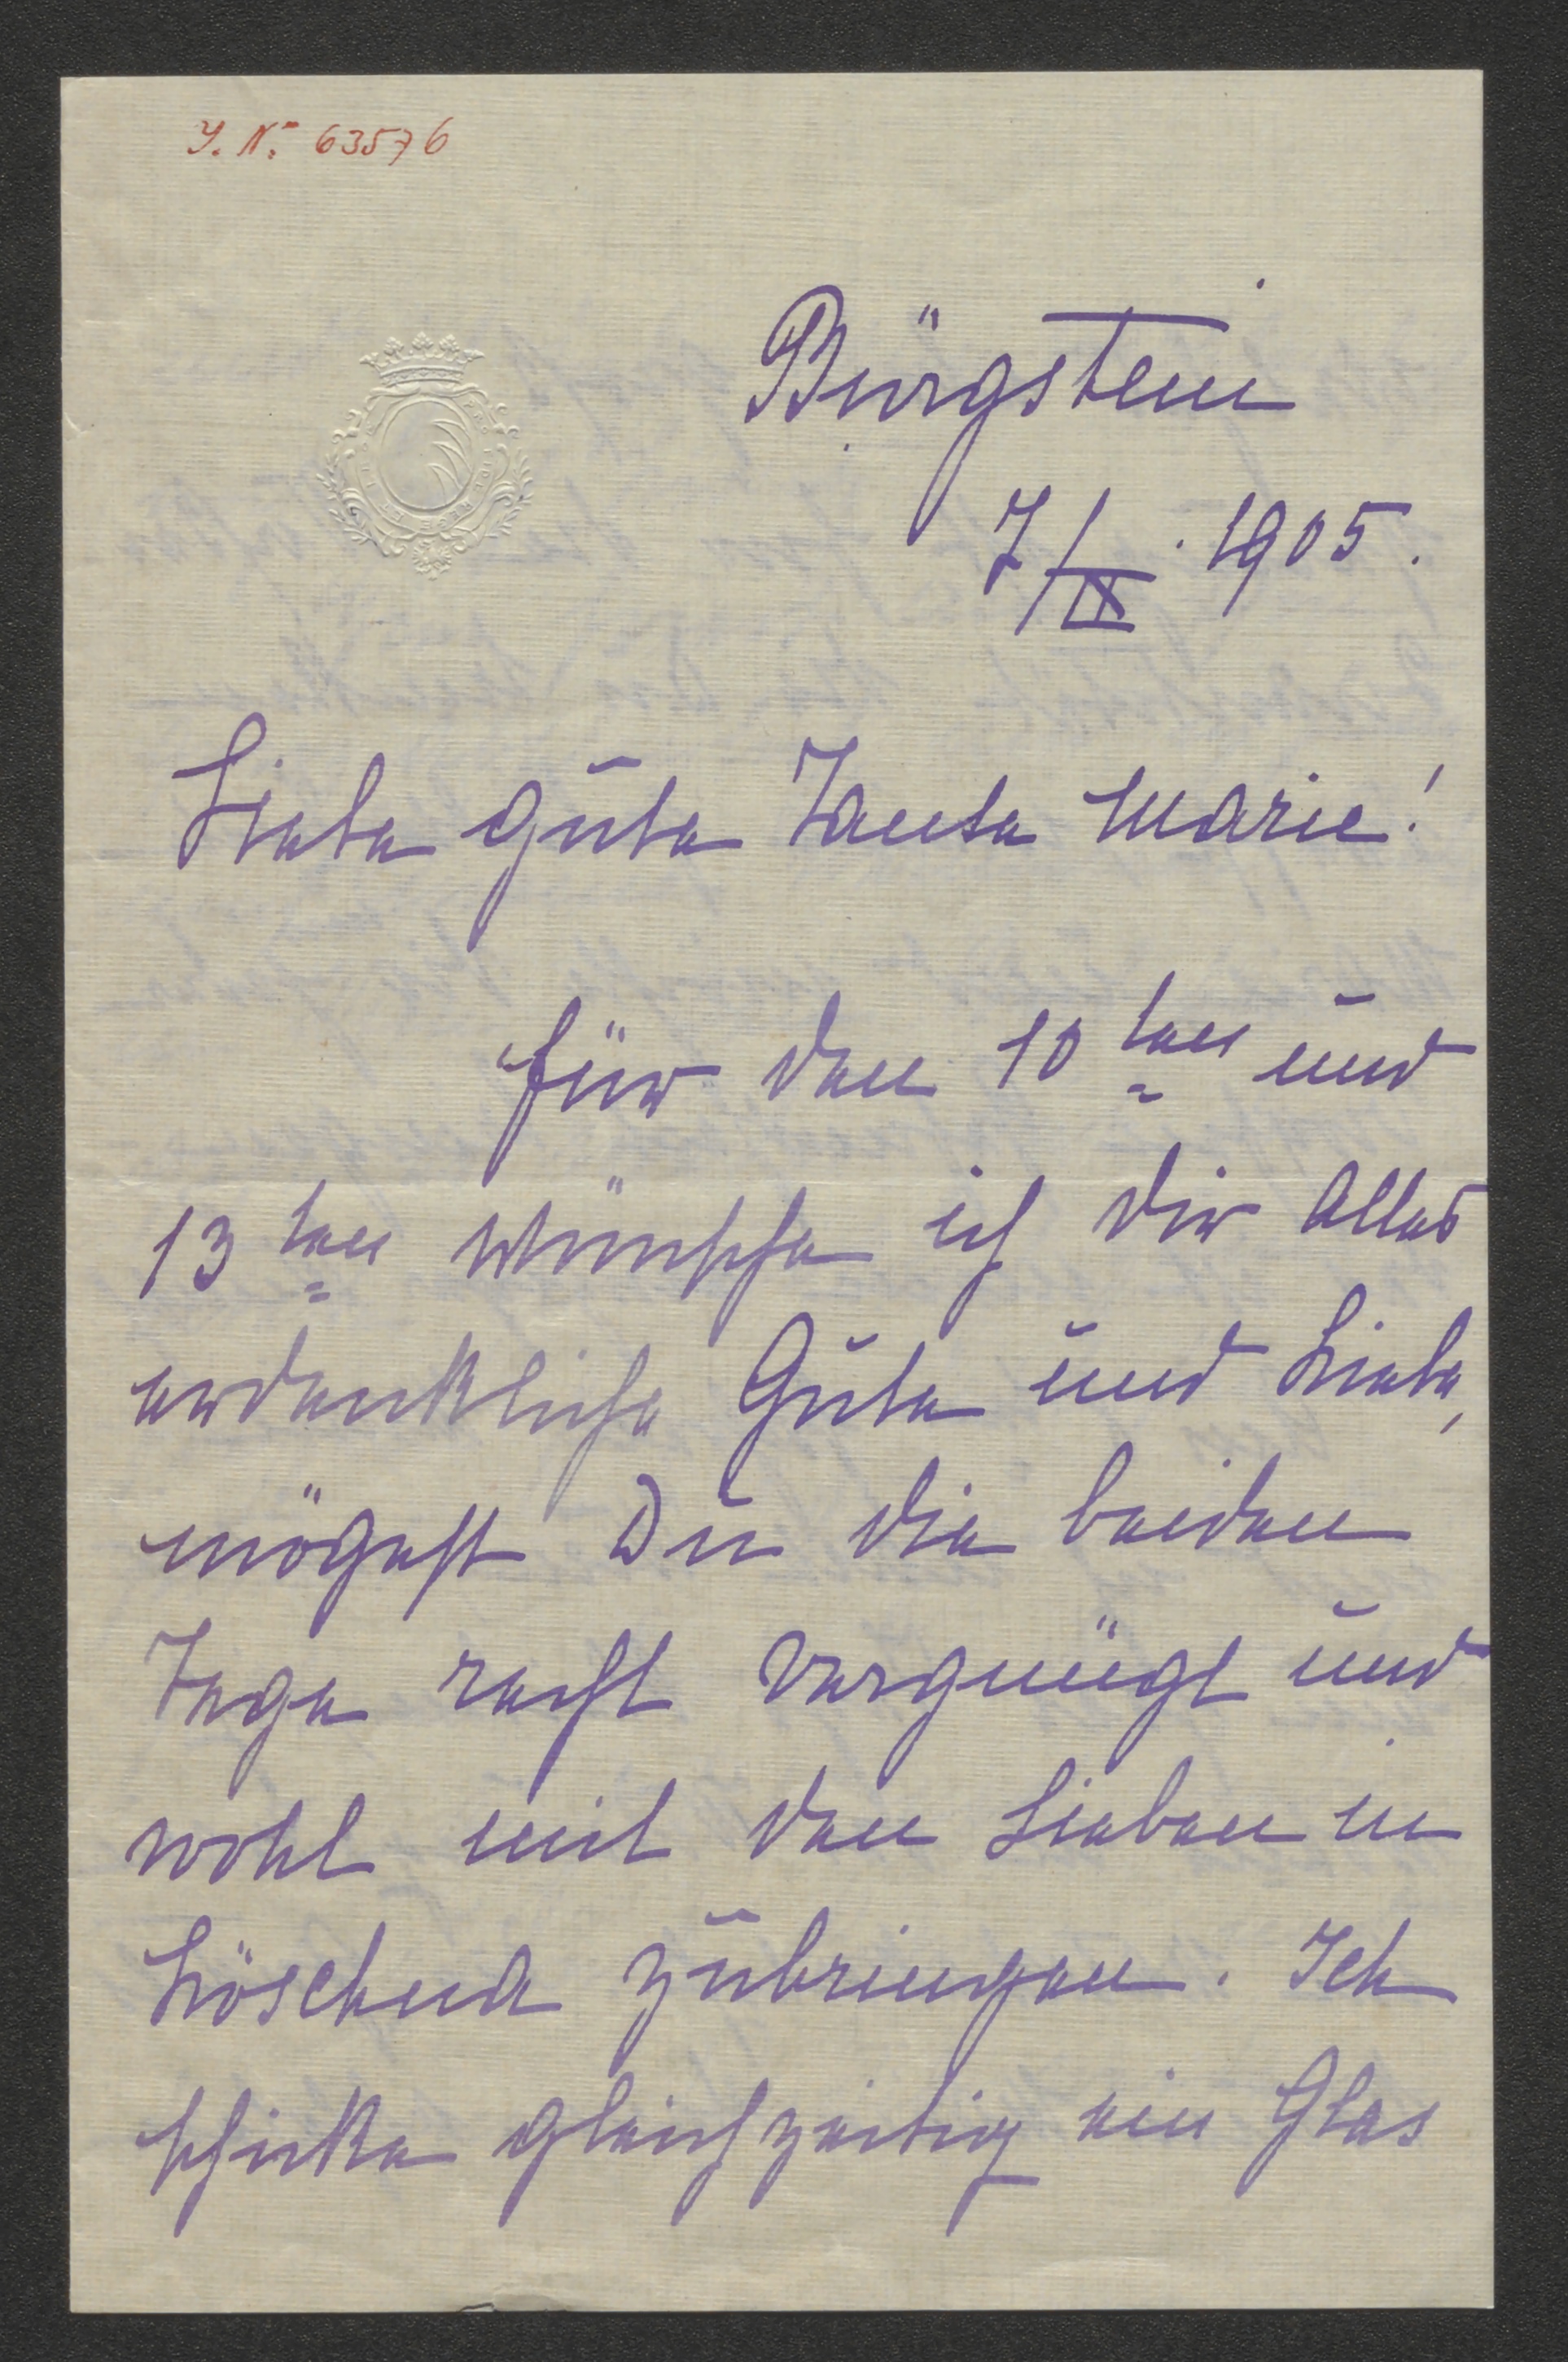 J. N. 63576
Bürgstein
7/IX. 1905.
Liebe gute Tante Marie!
für den 10ten und
13ten wünsche ich dir alles
erdenkliche Gute und Liebe,
mögest Du die beiden
Tage recht vergnügt und
wohl mit den Lieben in
Löschna zubringen. Ich
schicke gleichzeitig ein Glas